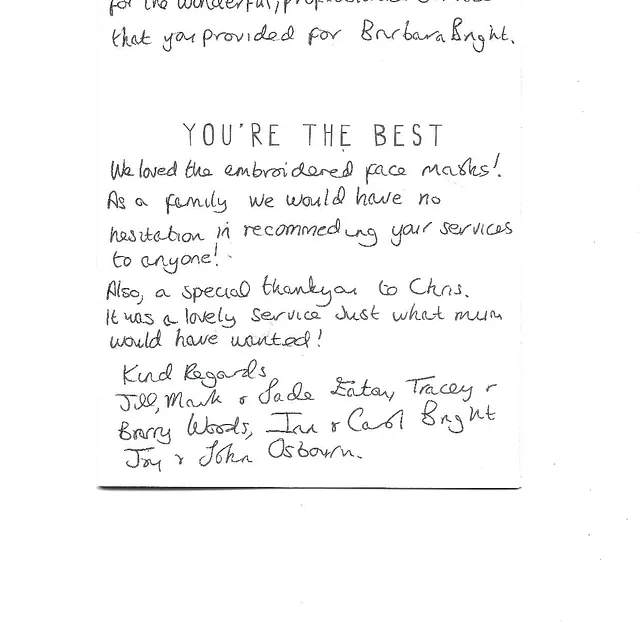 for the wonderful,
that you provided for Barbara Bright.
YOU'RE THE BEST
We loved the embroidered face masks!
As a family we would have no
hesitation in recommeding your services
to anyone!
Also, a special thankyou to Chris.
It was a lovely service Just what mum
would have wanted!
Kind Regards
Jill, Mark & Jade Eaton, Tracey &
Barry Woods, Ian & Carol Bright
Joy & John Osbourn.